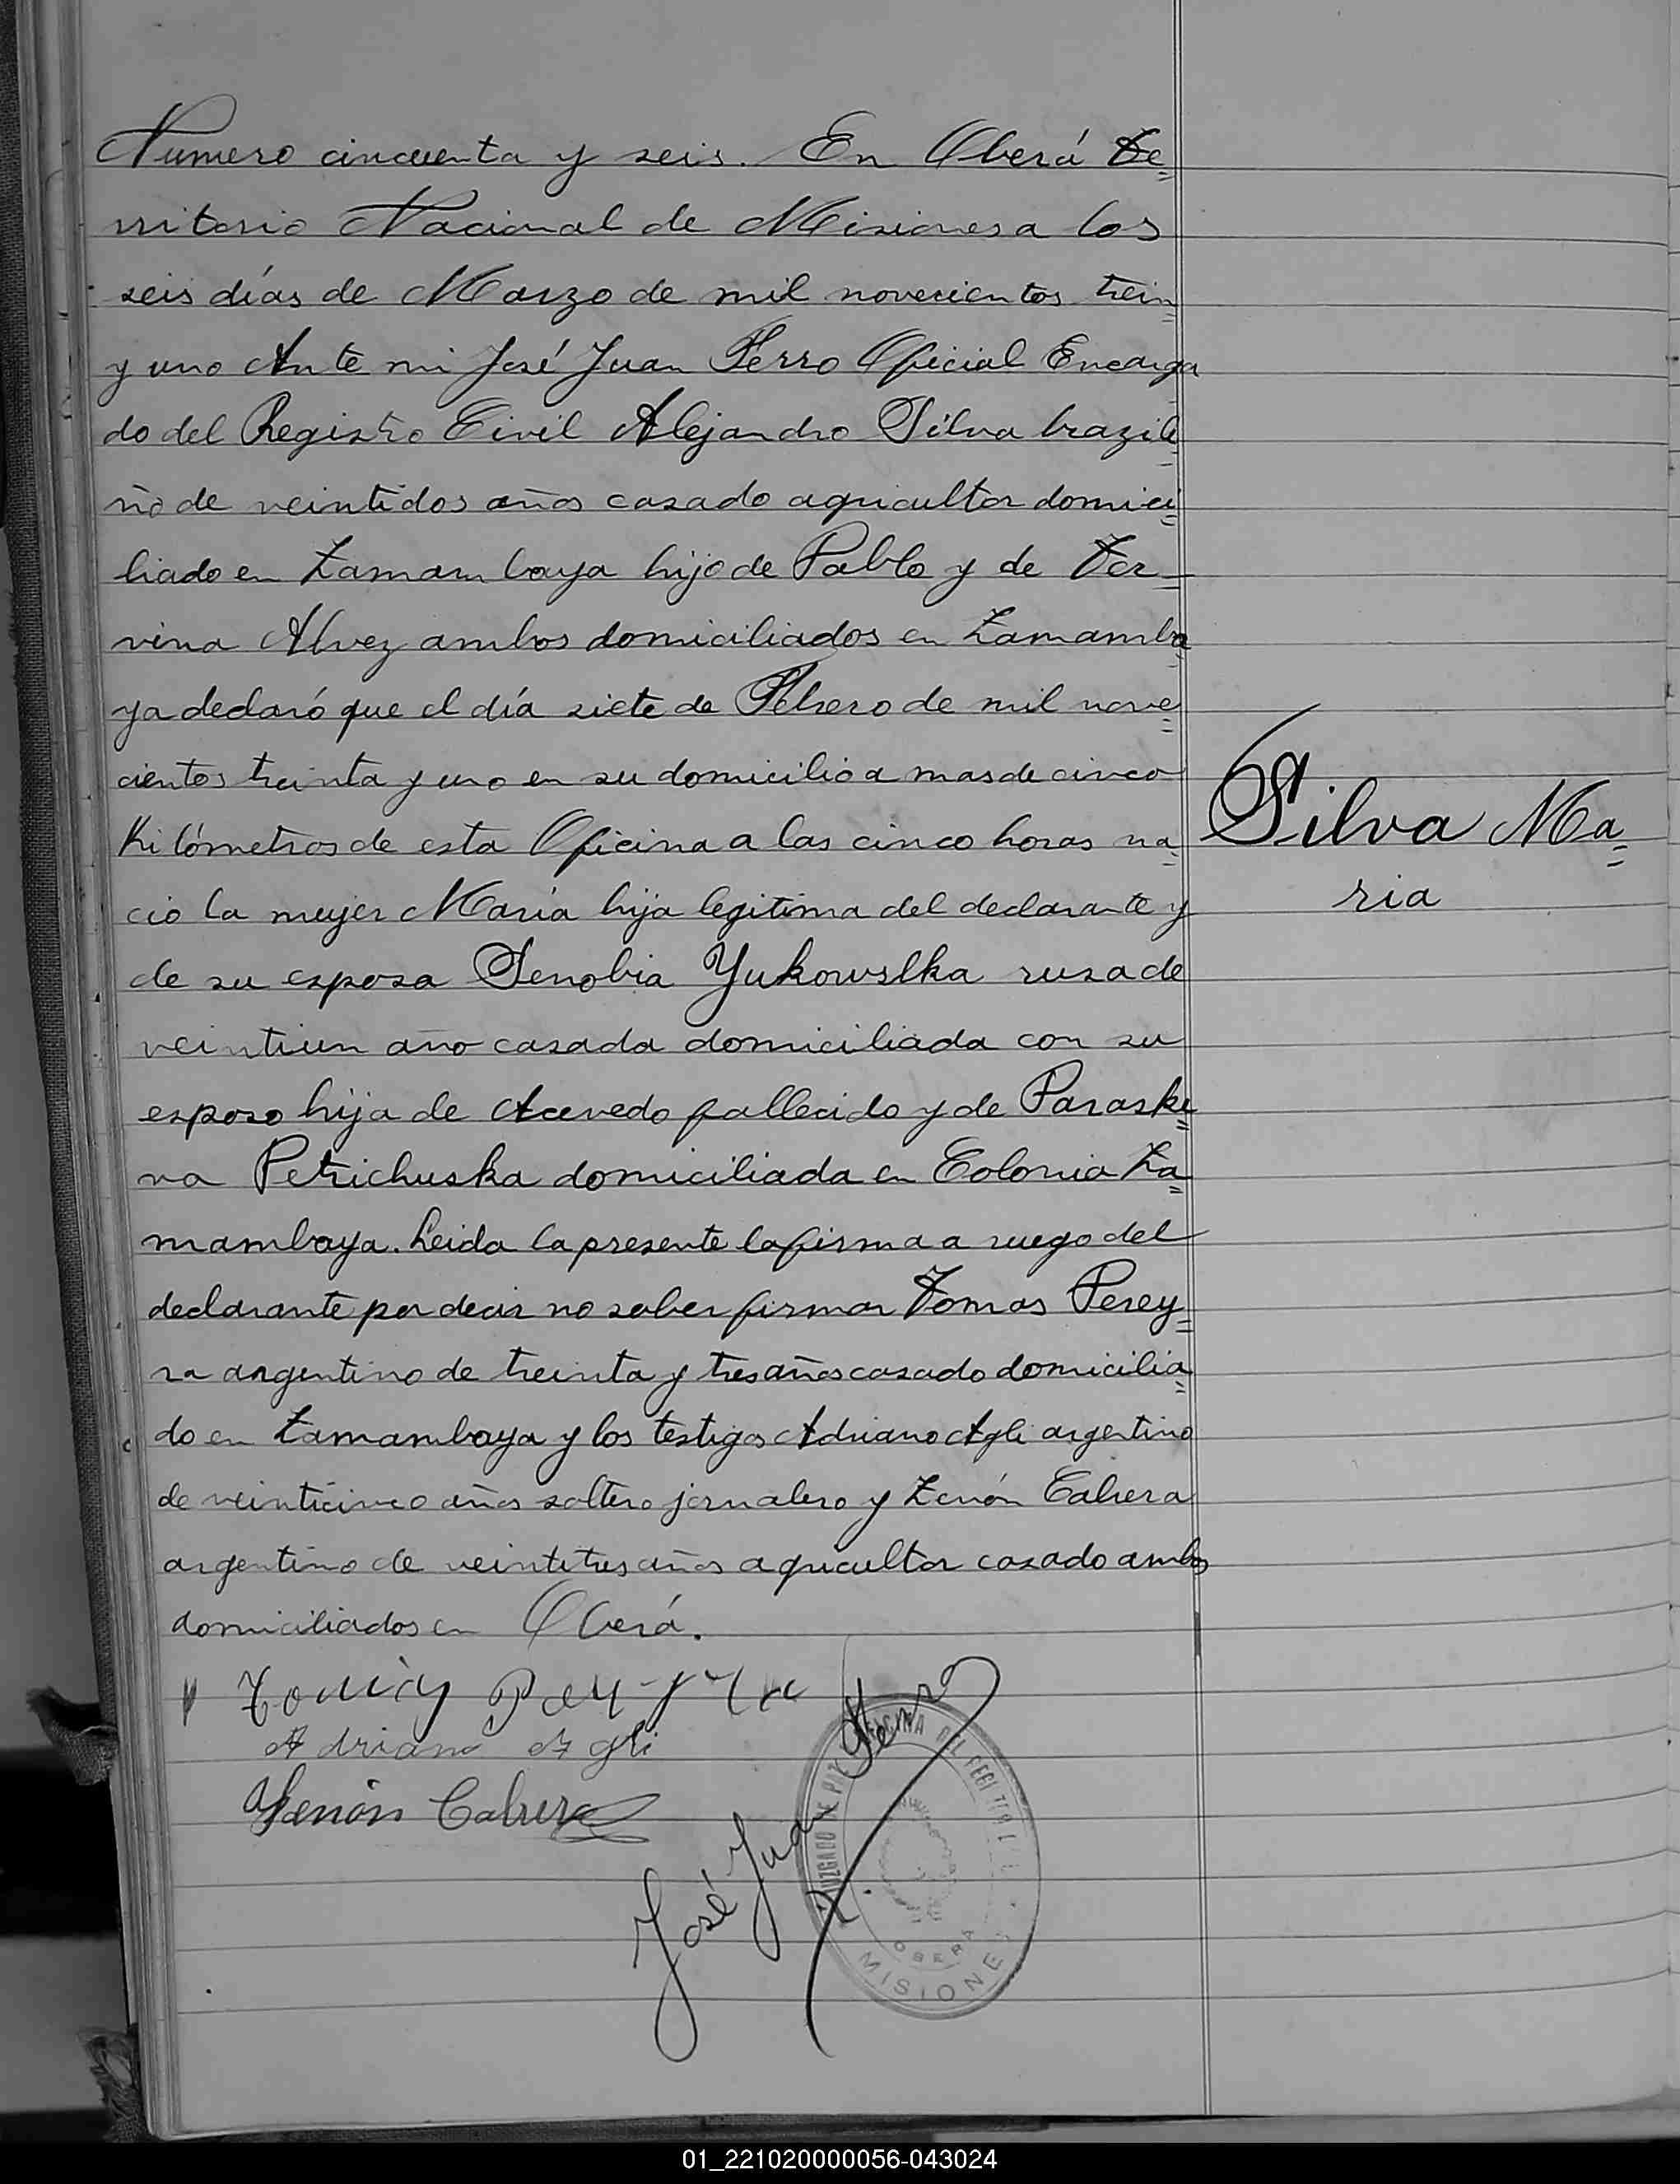 Numero cincuenta y seis. En Oberá Te=
rritorio Nacional de Misiones a los
seis días de Marzo de mil novecientos trein=
y uno Ante mi José Juan Ferro Oficial Encarga
do del Registro Civil Alejandro Silva brazile=
ño de veintidos años casado agricultor domici=
liado en Zamambaya hijo de Pablo y de Ter-
vina Alvez ambos domiciliados en Zamamba=
ya declaró que el día siete de Febrero de mil nove=
cientos treinta y uno en su domicilio a mas de cinco
Kilómetros de esta Oficina a las cinco horas na=
cio la mujer María hija legitima del declarante y
de su esposa Senobia Yukowslka rusa de
veintiun año casada domiciliada con su
esposo hija de Acevedo fallecido y de Paraske=
va Petrichuska domiciliada en Colonia Za=
mambaya. Leida la presente la firma a ruego del
declarante por decir no saber firmar Tomas Perey=
ra argentino de treinta y tres años casado domicilia=
do en Zamambaya y los testigos Adriano Agli argentino
de veinticinco años soltero jornalero y Zenón Cabrera
argentino de veintitres años agricultor casado ambos
domiciliados en Oberá.
Silva Ma=
ria
Adriano Agli
Zenón Cabrera
José Juan Ferro
JUZGADO DE PAZ OFICINA DEL REGISTRO CIVIL
OBERÁ
MISIONES
01_221020000056-043024